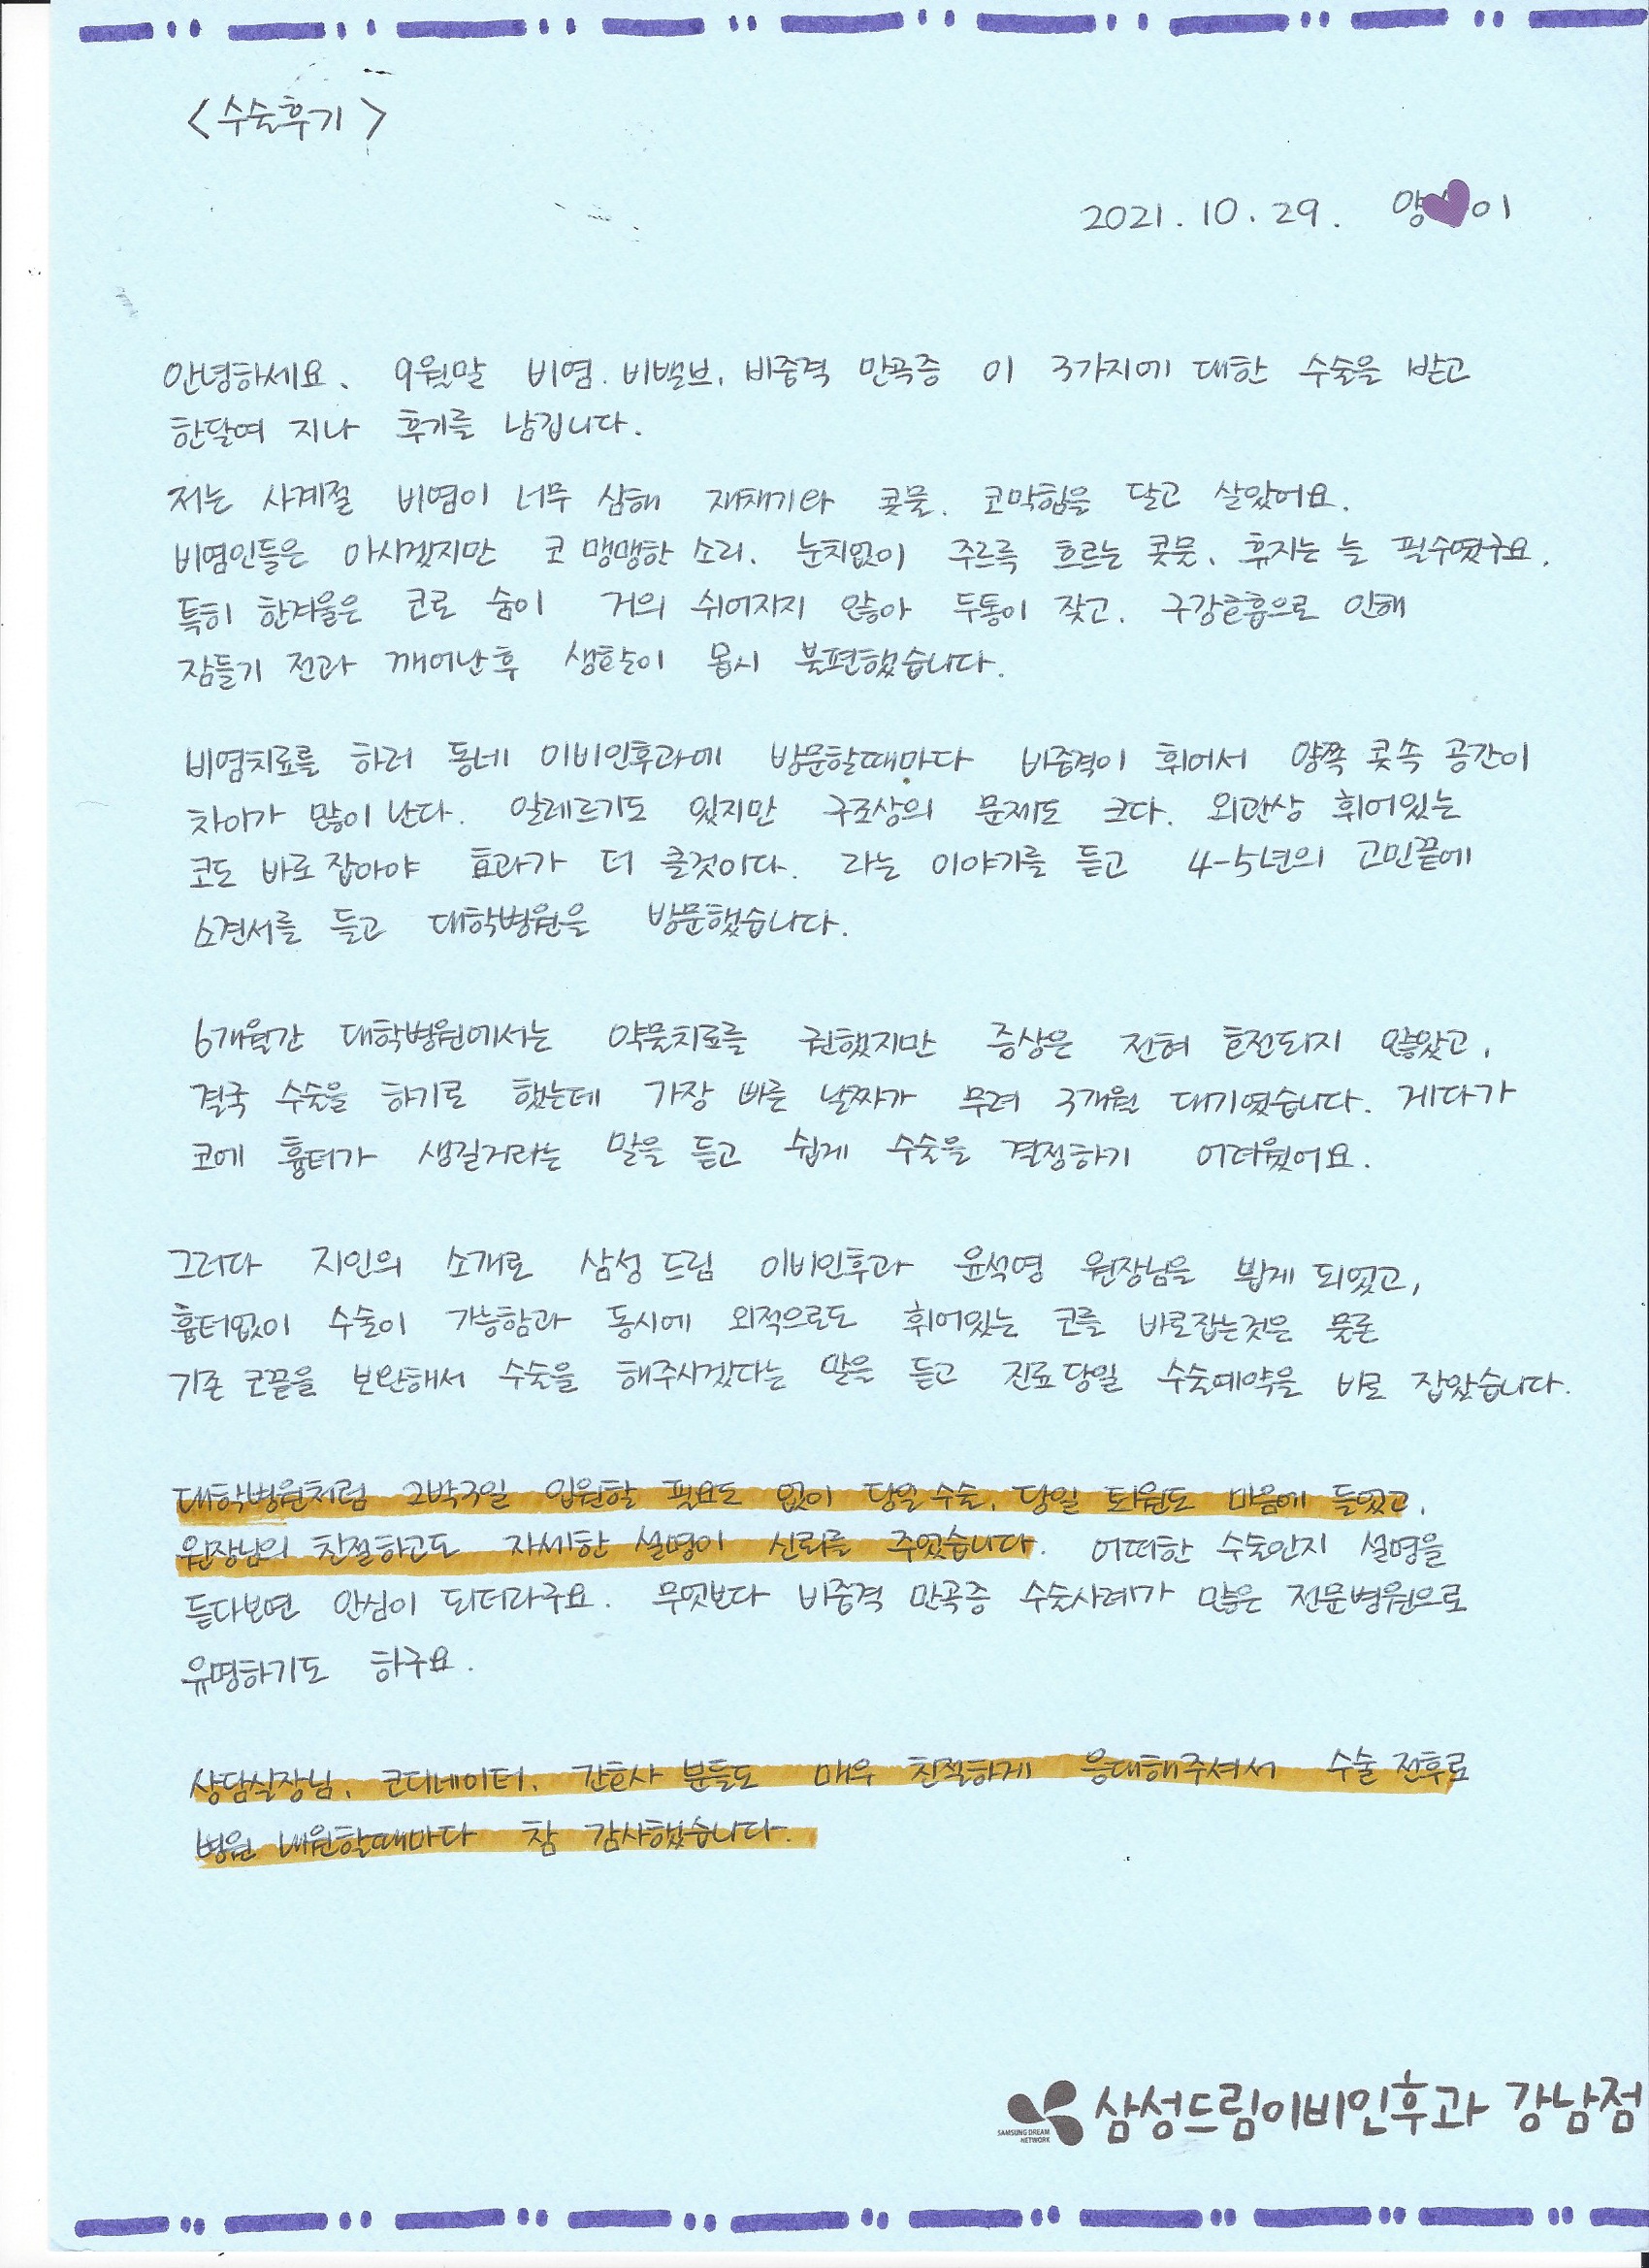 <수술후기>
2021. 10. 29. 양 이
안녕하세요. 9월말 비염. 비밸브. 비중격 만곡증 이 3가지에 대한 수술을 받고
한달여 지나 후기를 남깁니다.
저는 사계절 비염이 너무 심해 재채기와 콧물. 코막힘을 달고 살았어요.
비염인들은 아시겠지만 코 맹맹한 소리. 눈치없이 주르륵 흐르는 콧물. 휴지는 늘 필수였구요.
특히 한겨울은 코로 숨이 거의 쉬어지지 않아 두통이 잦고. 구강호흡으로 인해
잠들기 전과 깨어난후 생활이 몹시 불편했습니다.
비염치료를 하러 동네 이비인후과에 방문할때마다 비중격이 휘어서 양쪽 콧속 공간이
차이가 많이 난다. 알레르기도 있지만 구조상의 문제도 크다. 외관상 휘어있는
코도 바로 잡아야 효과가 더 클것이다. 라는 이야기를 듣고 4-5년의 고민끝에
소견서를 들고 대학병원을 방문했습니다.
6개월간 대학병원에서는 약물치료를 권했지만 증상은 전혀 호전되지 않았고,
결국 수술을 하기로 했는데 가장 빠른 날짜가 무려 3개월 대기였습니다. 게다가
코에 흉터가 생길거라는 말을 듣고 쉽게 수술을 결정하기 어려웠어요.
그러다 지인의 소개로 삼성드림 이비인후과 윤석영 원장님을 뵙게 되었고,
흉터없이 수술이 가능함과 동시에 외적으로도 휘어있는 코를 바로잡는것은 물론
기존 코끝을 보완해서 수술을 해주시겠다는 말을 듣고 진료당일 수술예약을 바로 잡았습니다.
대학병원처럼 2박3일 입원할 필요도 없이 당일수술. 당일 퇴원도 마음에 들었고,
원장님의 친절하고도 자세한 설명이 신뢰를 주었습니다. 어떠한 수술인지 설명을
듣다보면 안심이 되더라구요. 무엇보다 비중격 만곡증 수술사례가 많은 전문병원으로
유명하기도 하구요.
상담실장님. 코디네이터. 간호사 분들도 매우 친절하게 응대해주셔서 수술 전후로
병원 내원할때마다 참 감사했습니다.
삼성드림이비인후과 강남점
SAMSUNG DREAM
NETWORK